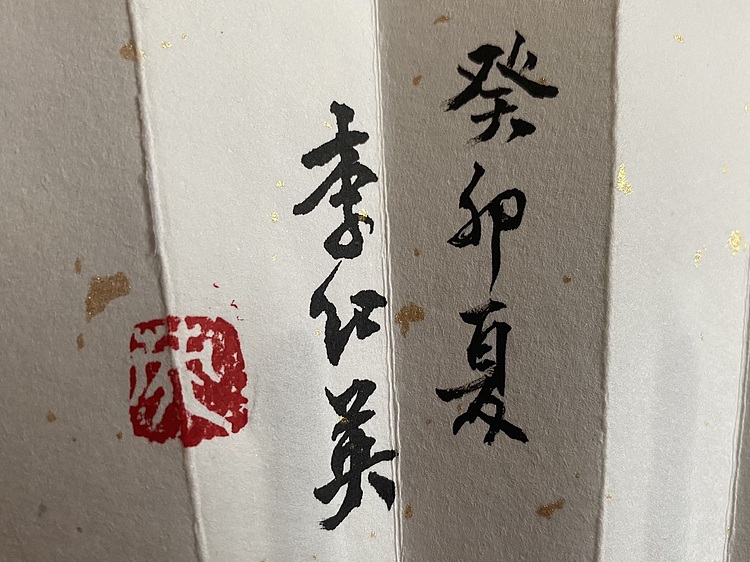 癸卯夏
李红英